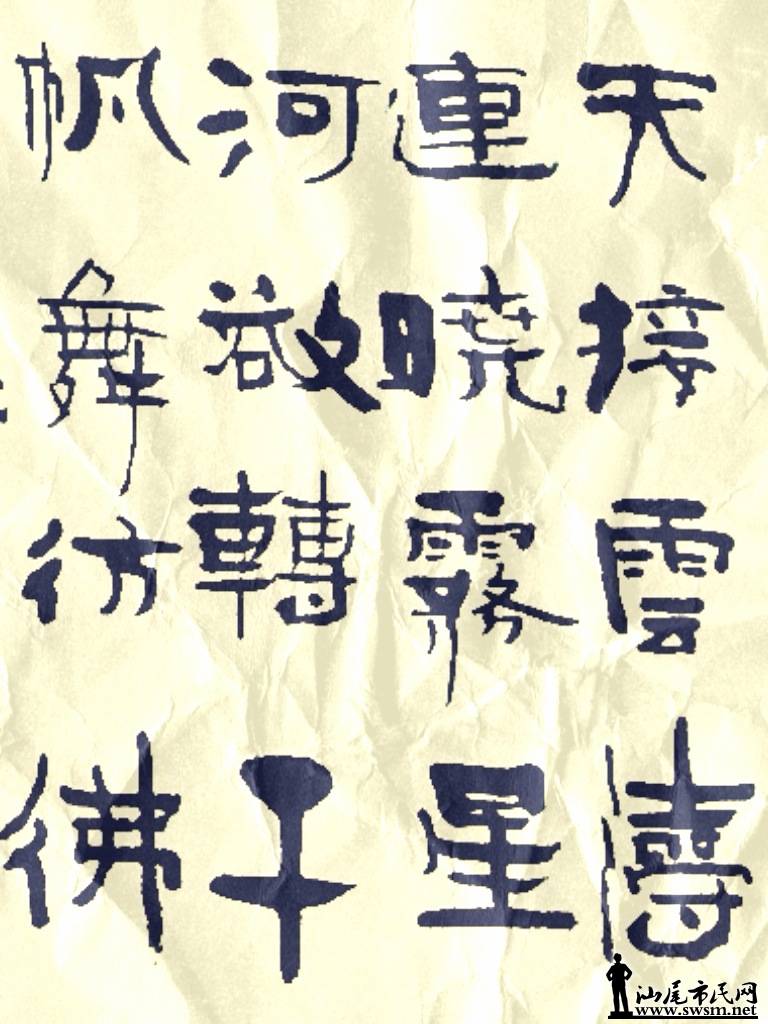 天接雲濤
連曉霧星
河欲轉千
帆舞彷彿
汕尾市民网
www.swsm.net